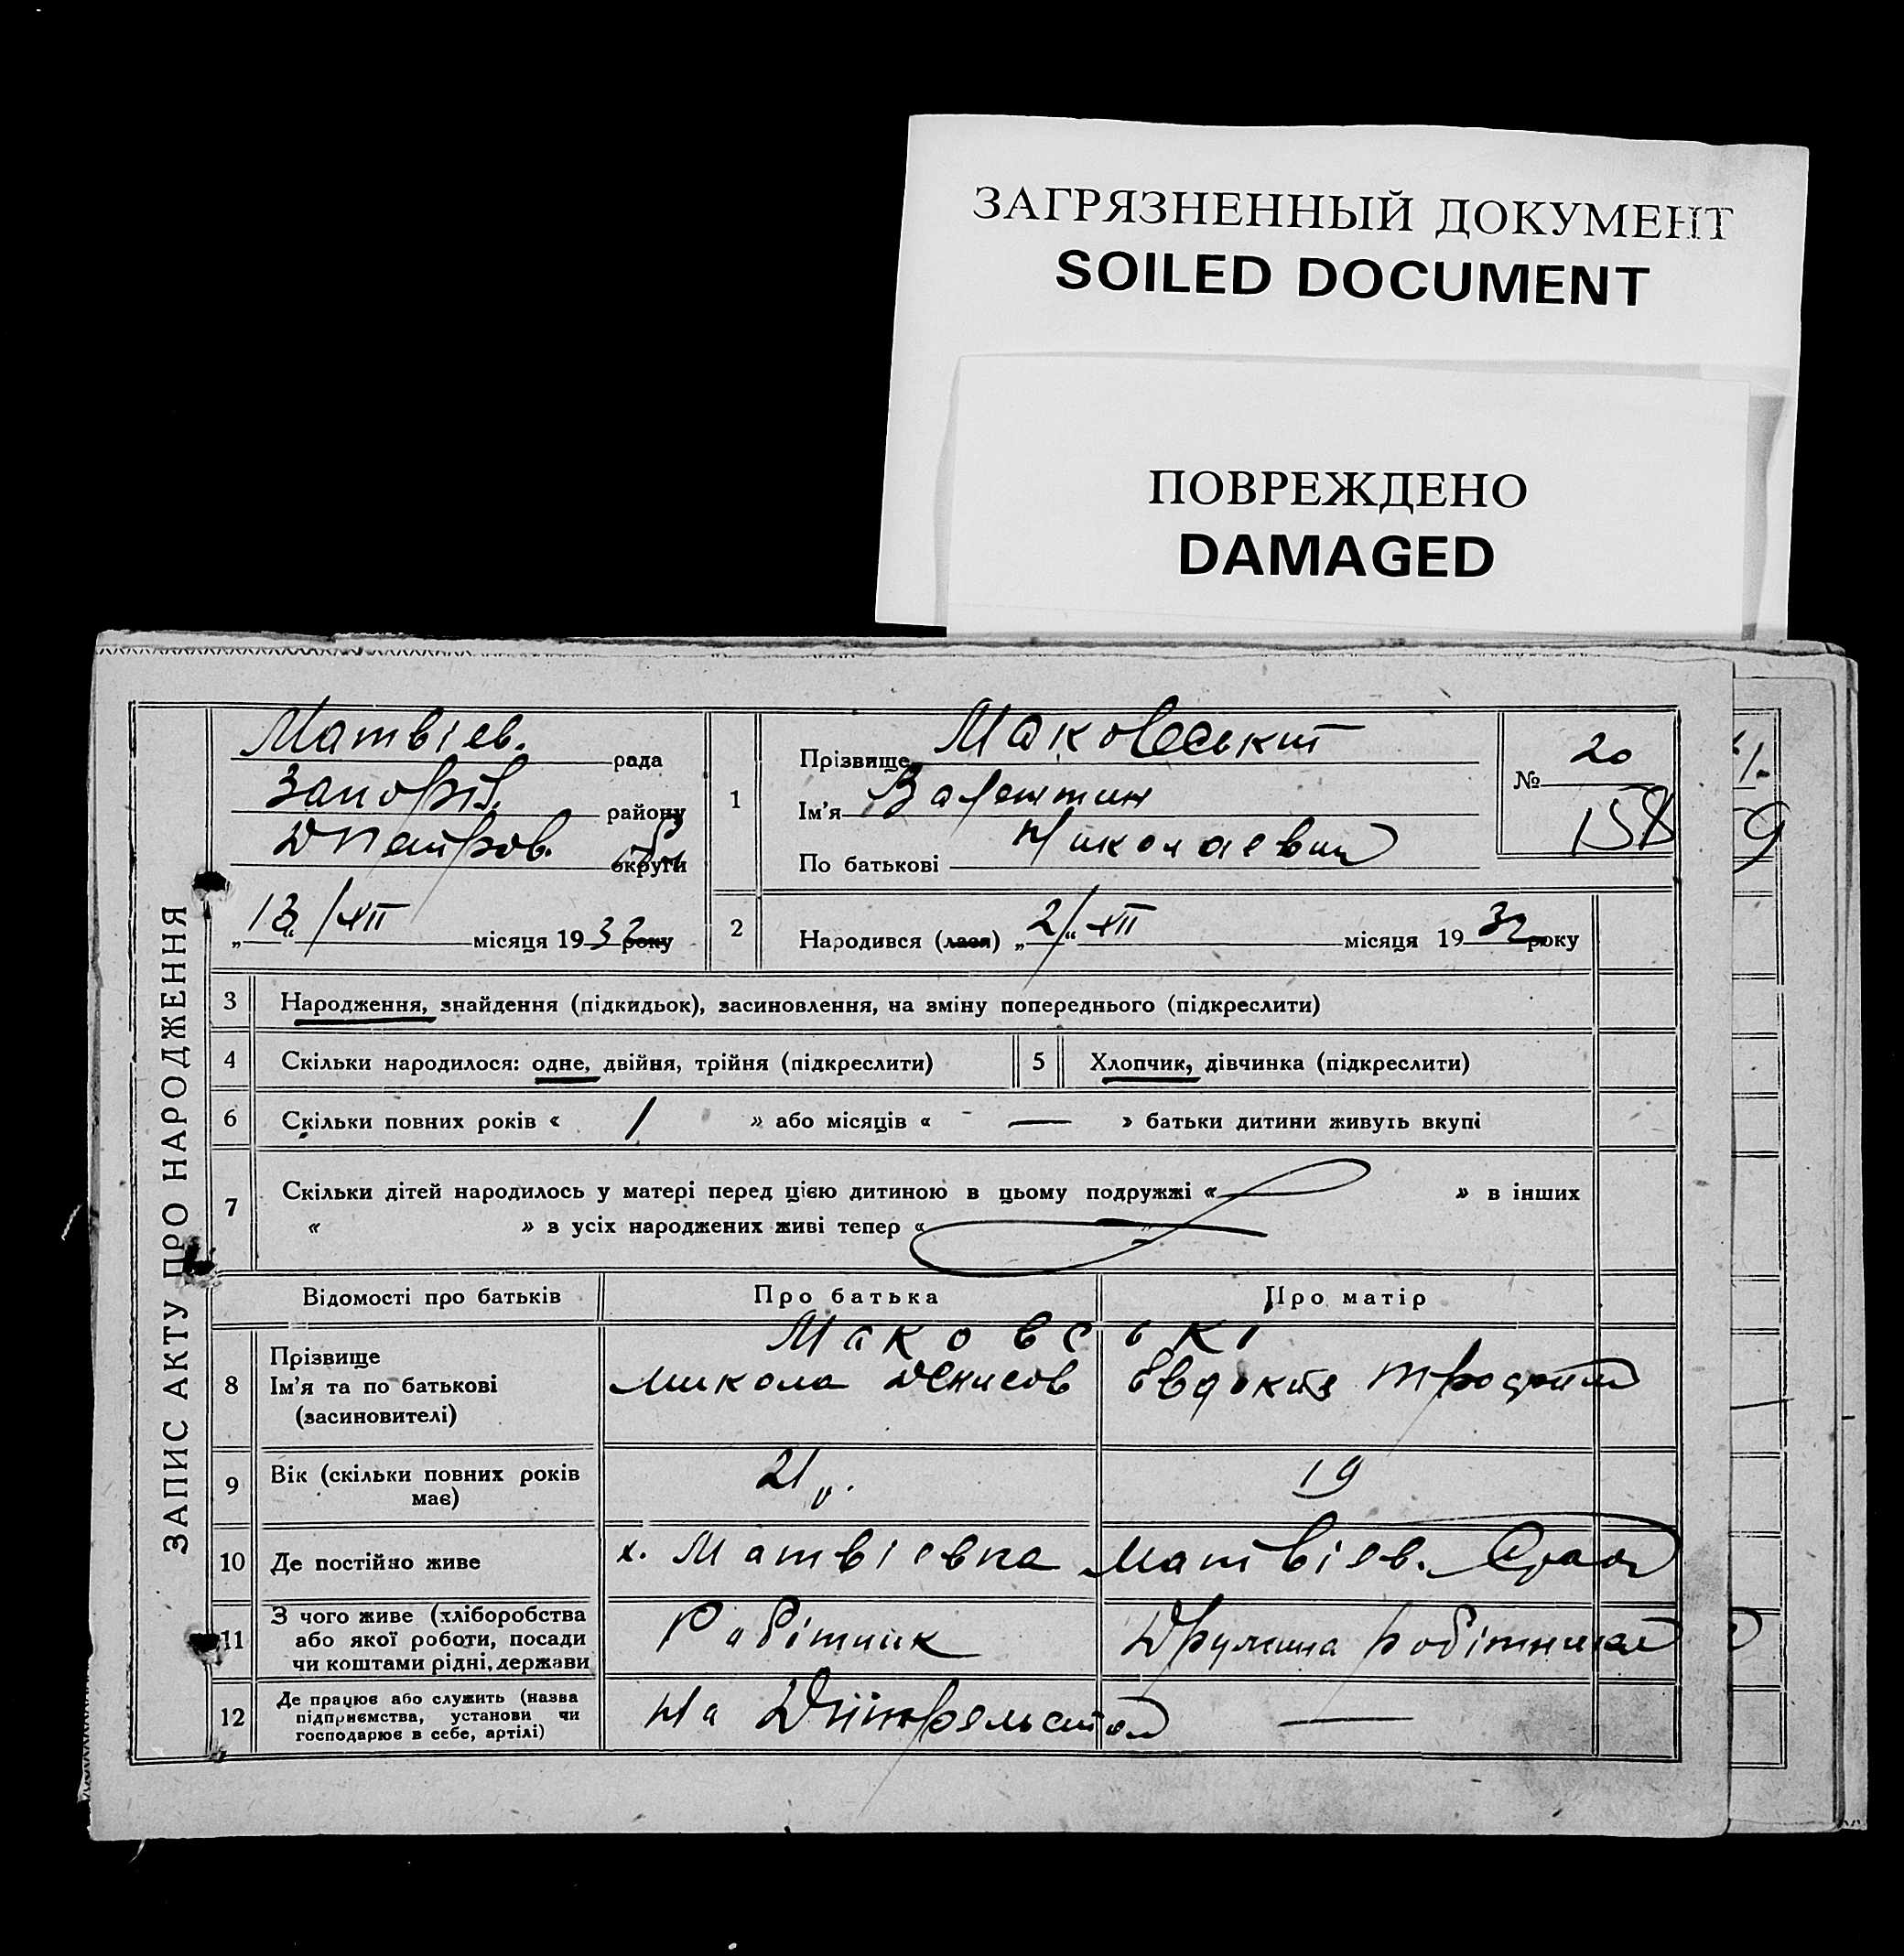 ЗАГРЯЗНЕННЫЙ ДОКУМЕНТ
SOILED DOCUMENT
ПОВРЕЖДЕНО
DAMAGED
ЗАПИС АКТУ ПРО НАРОДЖЕННЯ
Матвіев. рада
району
округи
„13“ / XII місяця 1932 року
1
Прізвище Маковський
Ім'я Валентин
По батькові Николаевич
№ 20
158
2
Народився (лася) „2/“ XII місяця 1932 року
3 Народження, знайдення (підкидьок), засиновлення, на зміну попереднього (підкреслити)
4 Скільки народилося: одне, двійня, трійня (підкреслити)
5 Хлопчик, дівчинка (підкреслити)
6 Скільки повних років « / » або місяців « — » батьки дитини живуть вкупі
7 Скільки дітей народилось у матері перед цією дитиною в цьому подружжі « » в інших
« » в усіх народжених живі тепер « »
Відомості про батьків Про батька Про матір
Маковські
8 Прізвище
Ім'я та по батькові
(засиновителі)
Микола Денисов Евдокія
9 Вік (скільки повних років
має)
21 19
10 Де постійно живе х. Матвіевка Матвіев.
11 З чого живе (хліборобства
або якої роботи, посади
чи коштами рідні, держави
Робітник Дружина робітника
12 Де працює або служить (назва
підприємства, установи чи
господарює в себе, артілі)
На —